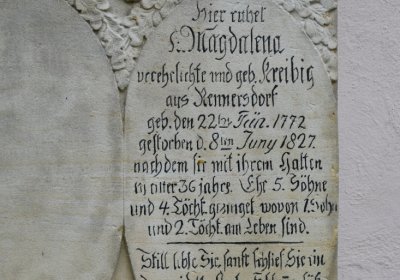 Hier ruhet
Fr. Magdalena
verehelichte und geb. Kreibig
aus Rennersdorf
geb. den 22ten Jän. 1772
gestorben d. 8ten Juny 1827.
nachdem sie mit ihrem Hatten
in einer 36 jahrs. Ehe 5. Söhne
und 4. Töcht. gezeuget wovon 1. Sohn
und 2. Töcht. am Leben sind.
Still lebte Sie, sanft schlief Sie in